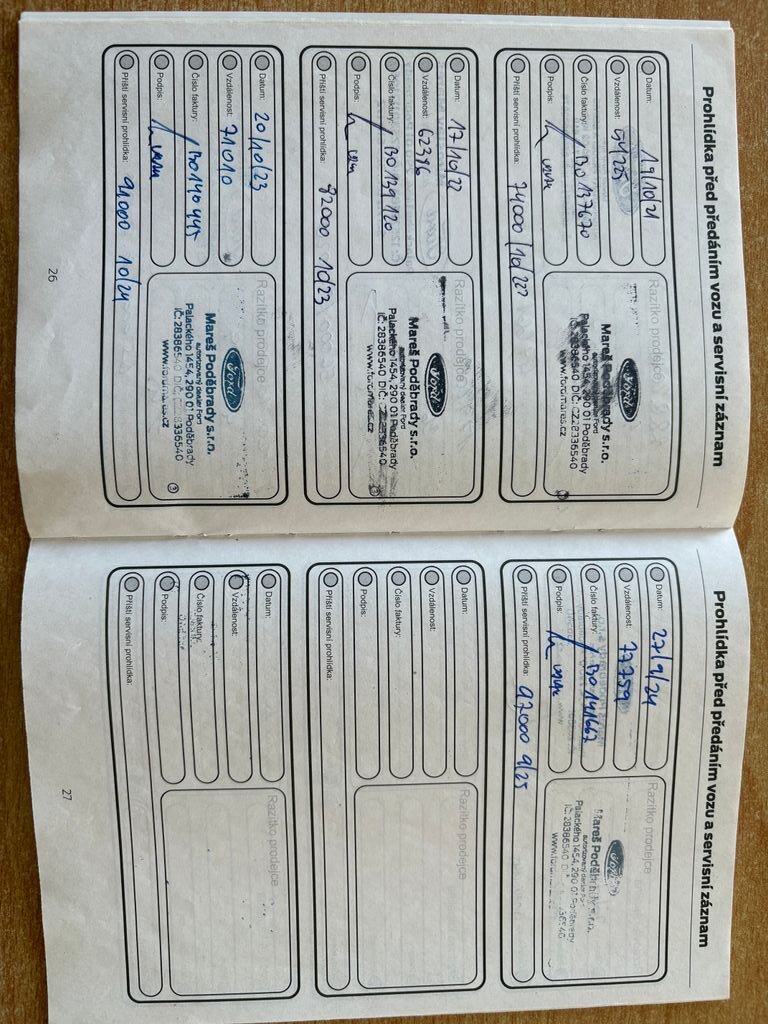 Prohlídka před předáním vozu a servisní záznam
Datum: 19/10/21
Vzdálenost: 54205
Číslo faktury: BO 137670
Podpis:
Příští servisní prohlídka: 74000 /10/22
Razítko prodejce
Ford
Mareš Poděbrady s.r.o.
autorizovaný dealer Ford
Palackého 1454, 290 01 Poděbrady
IČ: 28386540 DIČ: CZ28336540
www.fordmares.cz
Datum: 17/10/22
Vzdálenost: 62396
Číslo faktury: BO 139120
Podpis:
Příští servisní prohlídka: 82000 10/23
Razítko prodejce
Ford
Mareš Poděbrady s.r.o.
autorizovaný dealer Ford
Palackého 1454, 290 01 Poděbrady
IČ: 28386540 DIČ: 28336540
www.fordmares.cz
Datum: 20/10/23
Vzdálenost: 71010
Číslo faktury: BO 140445
Podpis:
Příští servisní prohlídka: 91000 10/24
Razítko prodejce
Ford
Mareš Poděbrady s.r.o.
autorizovaný dealer Ford
Palackého 1454, 290 01 Poděbrady
IČ: 28386540 DIČ: 28336540
www.fordmares.cz
26
Prohlídka před předáním vozu a servisní záznam
Datum: 27/9/24
Vzdálenost: 77759
Číslo faktury: BO 141667
Podpis:
Příští servisní prohlídka: 97000 9/25
Razítko prodejce
Ford
Mareš Poděbrady s.r.o.
autorizovaný dealer Ford
Palackého 1454, 290 01 Poděbrady
IČ: 28386540
Datum:
Vzdálenost:
Číslo faktury:
Podpis:
Příští servisní prohlídka:
Razítko prodejce
Datum:
Vzdálenost:
Číslo faktury:
Podpis:
Příští servisní prohlídka:
Razítko prodejce
27